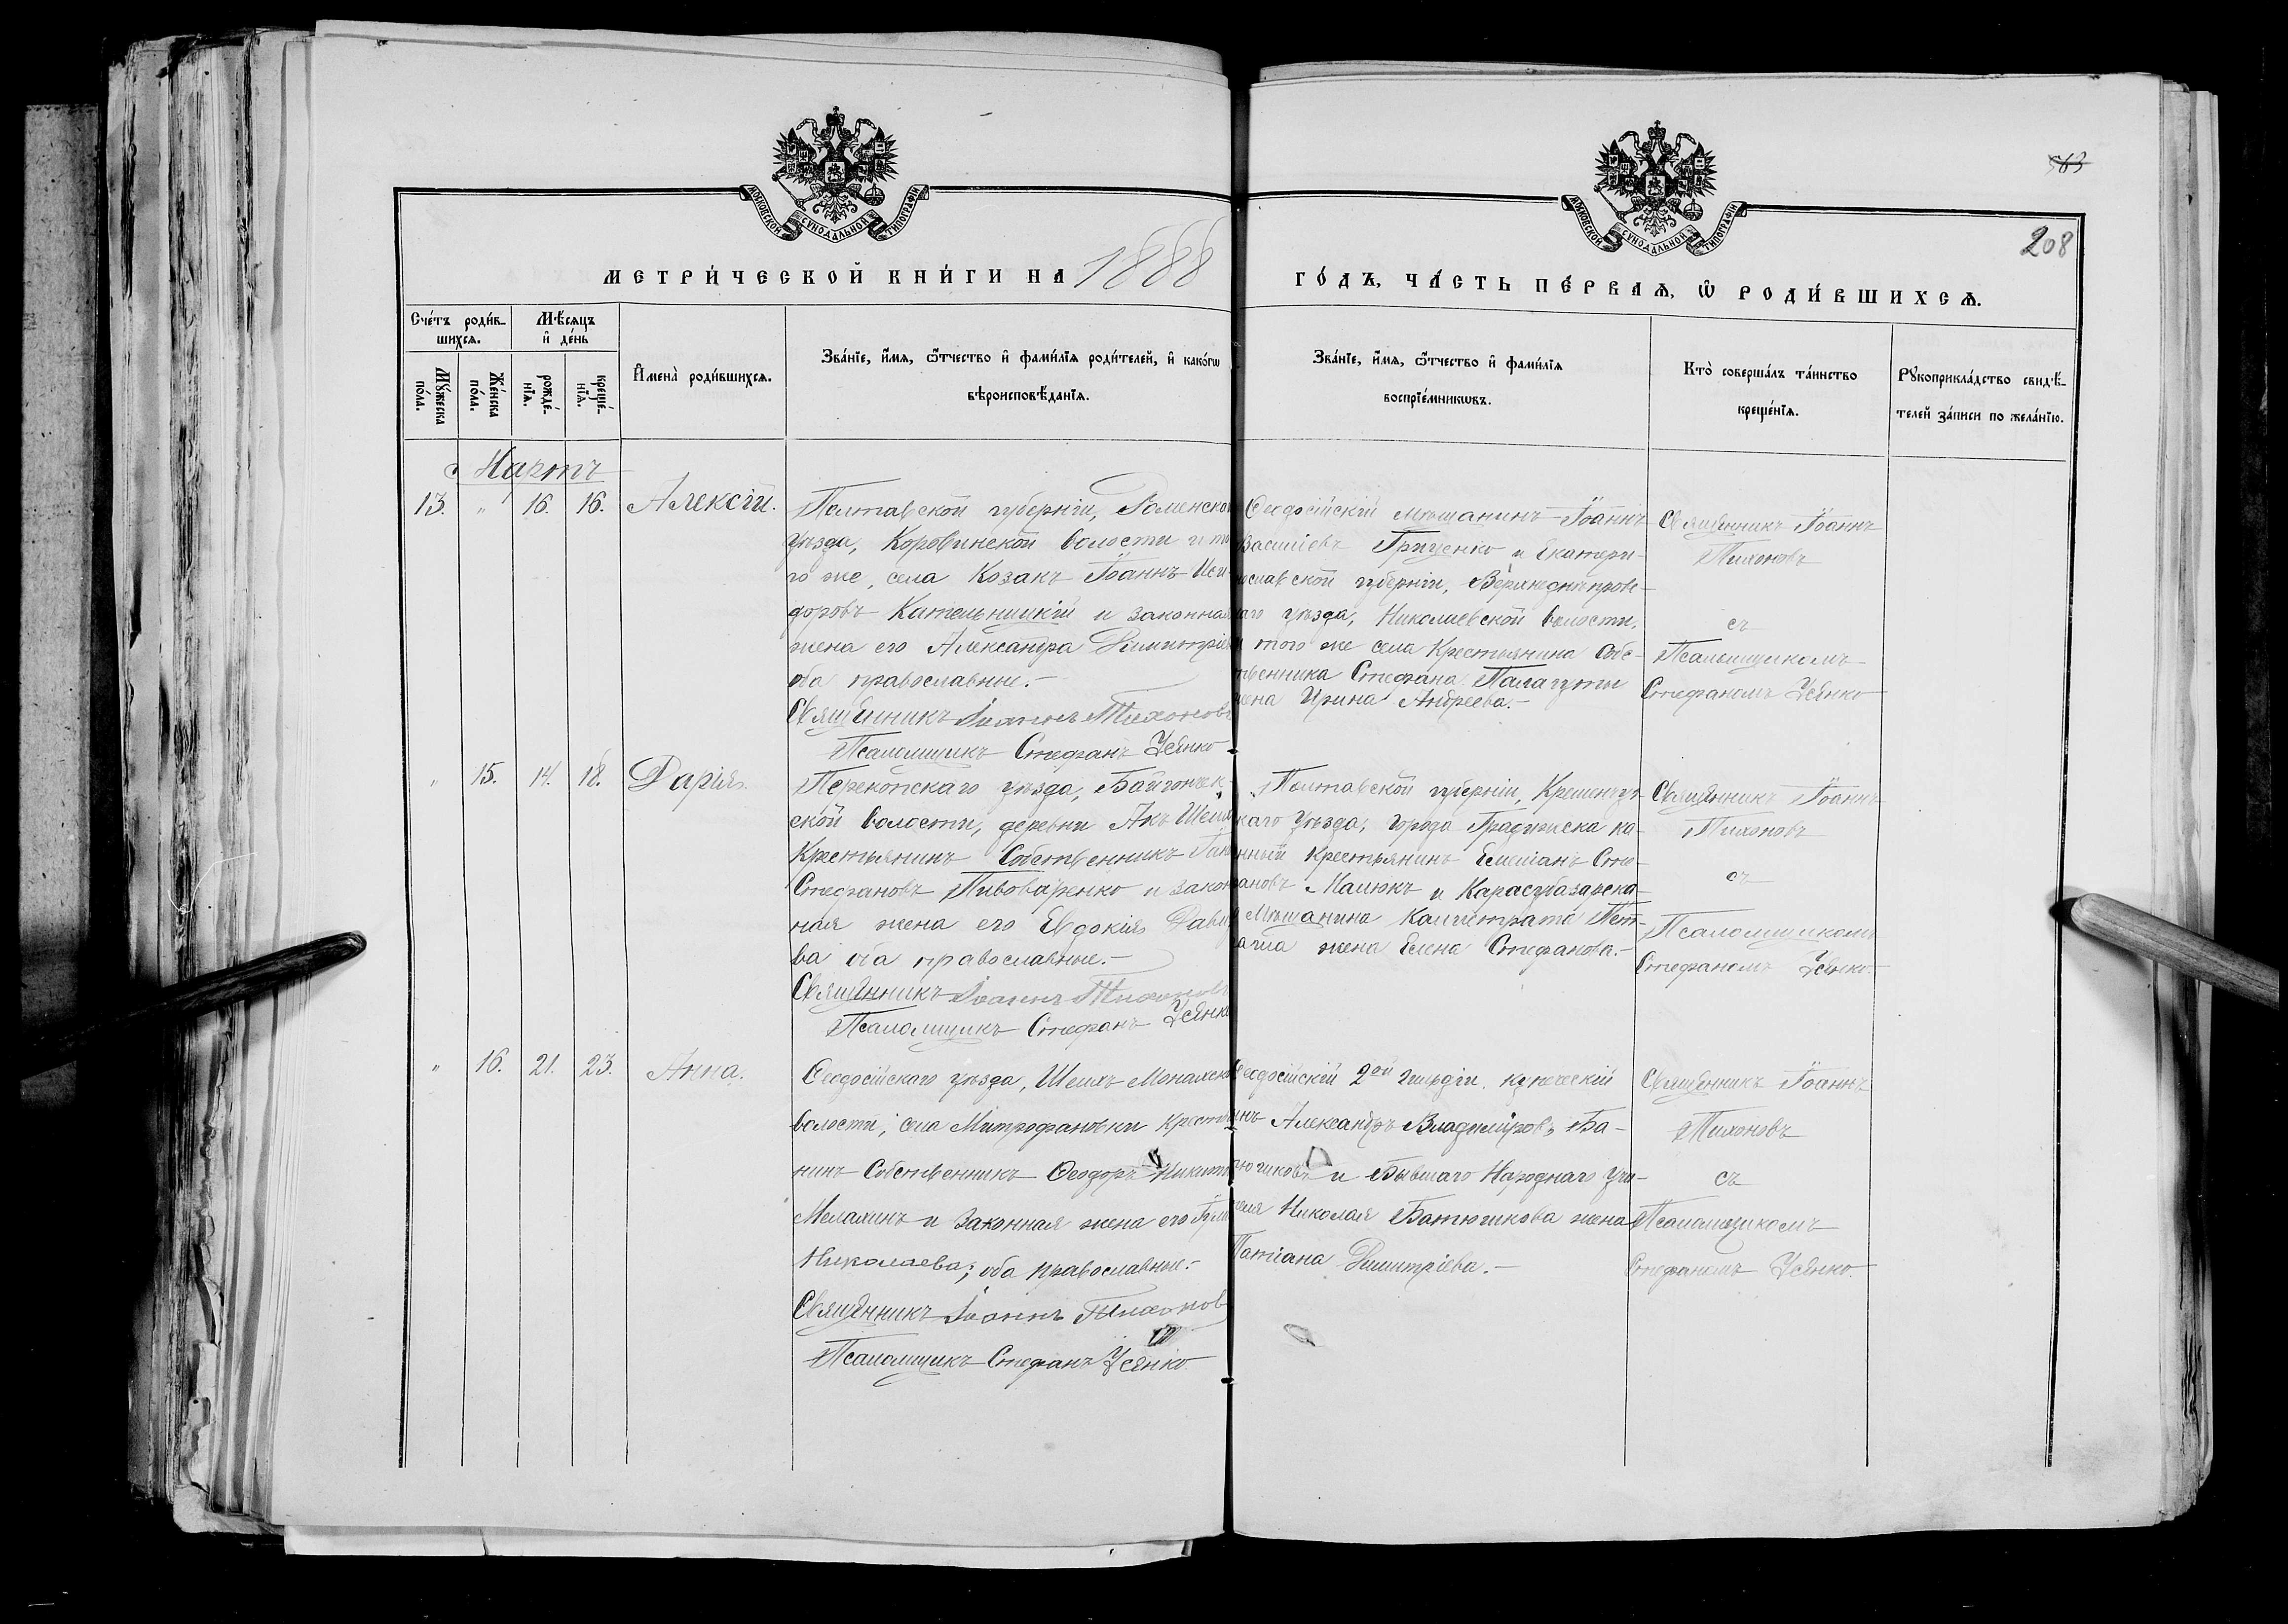 563
208
МОСКОВСКОЙ СѴНОДАЛЬНОЙ ТИПОГРАФІИ
МОСКОВСКОЙ СѴНОДАЛЬНОЙ ТИПОГРАФІИ
МЕТРИ́ЧЕСКОЙ КНИ́ГИ НА 1888
ГО́ДЪ, ЧА́СТЬ ПЕ́РВАѦ, Ѡ РОДИ́ВШИХСѦ.
Сче́тъ роди́в-
шихсѧ.
Мꙋ́жеска по́ла.
Же́нска по́ла.
Мѣ́сѧцъ
и҆ де́нь
рожде́-
нїѧ.
креще́-
нїѧ.
И҆мена̀ роди́вшихсѧ.
Зва́нїе, и҆́мѧ, ѻ҆́тчество и҆ фами́лїѧ роди́телей, и҆ како́гѡ
вѣроисповѣ́данїѧ.
Зва́нїе, и҆́мѧ, ѻ҆́тчество и҆ фами́лїѧ
воспрїе́мникѡвъ.
Кто̀ соверша́лъ та́инство
креще́нїѧ.
Рꙋкоприкла́дство свидѣ́-
телей за́писи по жела́нїю.
Мартъ
13. " 16. 16. Алексій.
Полтавской губерніи, Роменско
уѣзда, Коровинской волости и то
го же, села Козакъ Іоаннъ Иси-
доровъ Кательницкій и законная
жена его Александра Димитріев
оба православные.-
Священникъ Іоаннъ Тихоновъ
Псаломщикъ Стефанъ Усенко
Ѳеодосійскій мѣщанинъ Іоаннъ
Василіевъ Гриценко и Екатери-
нославской губерніи, Верхнеднѣпров-
аго уѣзда, Николаевской волости,
и того же села Крестьянина Соб-
твенника Стефана Палагуты
жена Ирина Андреева.-
Священникъ Іоаннъ
Тихоновъ
съ
Псаломщикомъ
Стефаномъ Усенко
" 15. 14. 18. Дарія.
Перекопскаго уѣзда, Байгончек-
ской волости, деревни Акъ Шеих
Крестьянинъ Собственникъ
Стефановъ Пивоваренко и закон
ная жена его Евдокія Давид
ва оба православные.-
Священникъ Іоаннъ Тихоновъ
Псаломщикъ Стефанъ Усенко
Полтавской губерніи, Кременчуг-
каго уѣзда, города Градижска ка-
нный Крестьянинъ Емеліанъ Сте-
фановъ Малюкъ и Карасубазарска-
Мѣщанина Калистрата
жена Елена Стефанова.-
Священникъ Іоаннъ
Тихоновъ
съ
Псаломщикомъ
Стефаномъ Усенко.
" 16. 21. 23. Анна.
Ѳеодосійскаго уѣзда, Шеихъ Монахск
волости, села Митрофановки Крестья
нинъ Собственникъ Ѳеодоръ Никит
Мелахинъ и законная жена его
Николаева; оба православные.-
Священникъ Іоаннъ Тихонов
Псаломщикъ Стефанъ Усенко
Ѳеодосійскій 2ой гильдіи купеческій
ынъ Александръ Владиміровъ Ба-
тюшковъ и Бывшаго Народнаго Учи-
теля Николая Батюшкова жена
Татіана Димитріева.-
Священникъ Іоаннъ
Тихоновъ
съ
Псаломщикомъ
Стефаномъ Усенко.